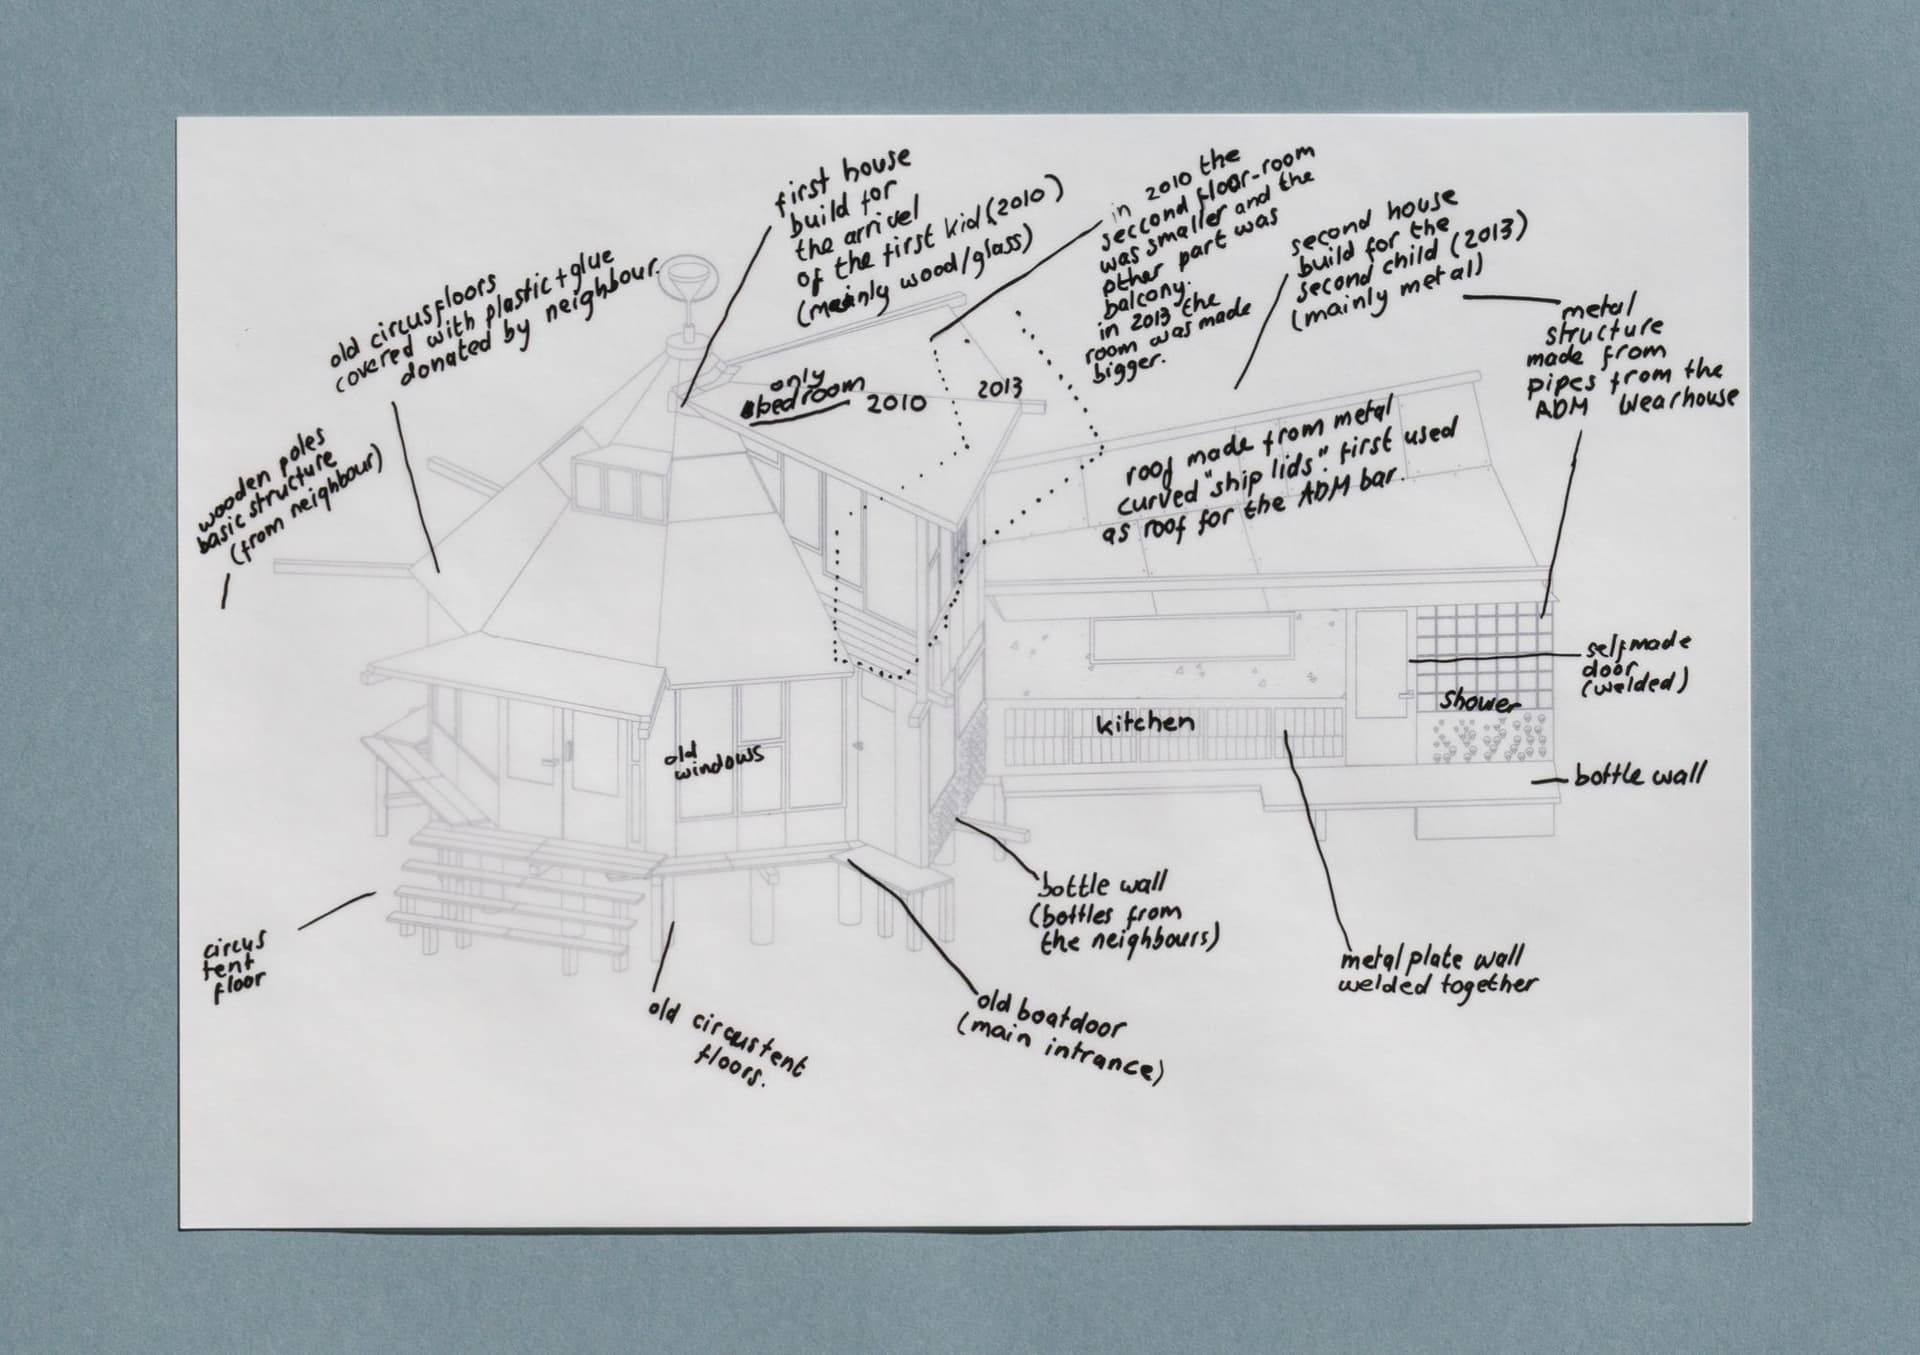 first house
build for
the arrivel
of the first kid (2010)
(mainly wood/glass)
in 2010 the
seccond floor-room
was smaller and the
other part was
balcony.
in 2013 the
room was made
bigger.
second house
build for the
second child (2013)
(mainly metal)
metal
structure
made from
pipes from the
ADM wearhouse
old circusfloors
covered with plastic+glue
donated by neighbour.
wooden poles
basic structure
(from neighbour)
only
bedroom
2010
2013
roof made from metal
curved "ship lids". first used
as roof for the ADM bar.
selfmade
door
(welded)
shower
kitchen
old
windows
bottle wall
bottle wall
(bottles from
the neighbours)
metal plate wall
welded together
circus
tent
floor
old circustent
floors.
old boatdoor
(main intrance)